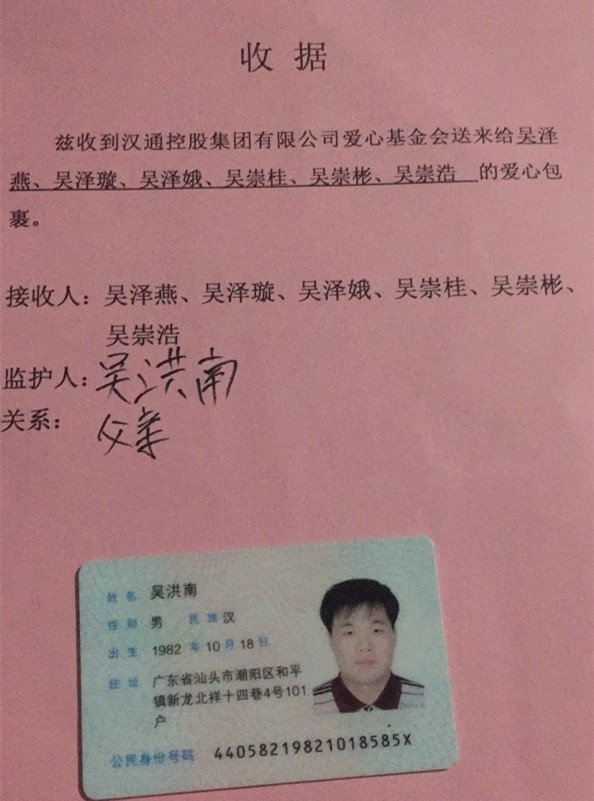 收据
兹收到汉通控股集团有限公司爱心基金会送来给吴泽
燕、吴泽璇、吴泽娥、吴崇桂、吴崇彬、吴崇浩 的爱心包
裹。
接收人：吴泽燕、吴泽璇、吴泽娥、吴崇桂、吴崇彬、
吴崇浩
监护人：吴洪南
关系：父亲
姓名 吴洪南
性别 男 民族 汉
出生 1982 年 10 月 18 日
住址 广东省汕头市潮阳区和平
镇新龙北祥十四巷4号101
户
公民身份号码 44058219821018585X